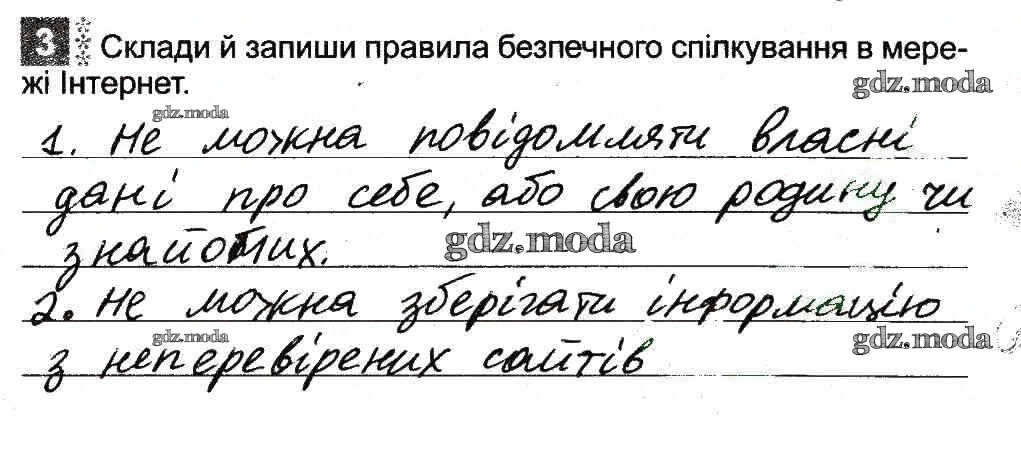 3 Склади й запиши правила безпечного спілкування в мере-
жі Інтернет.
gdz.moda
gdz.moda
1. Не можна повідомляти власні
дані про себе, або свою родину чи
знайомих.
gdz.moda
2. Не можна зберігати інформацію
gdz.moda
gdz.moda
з неперевірених сайтів